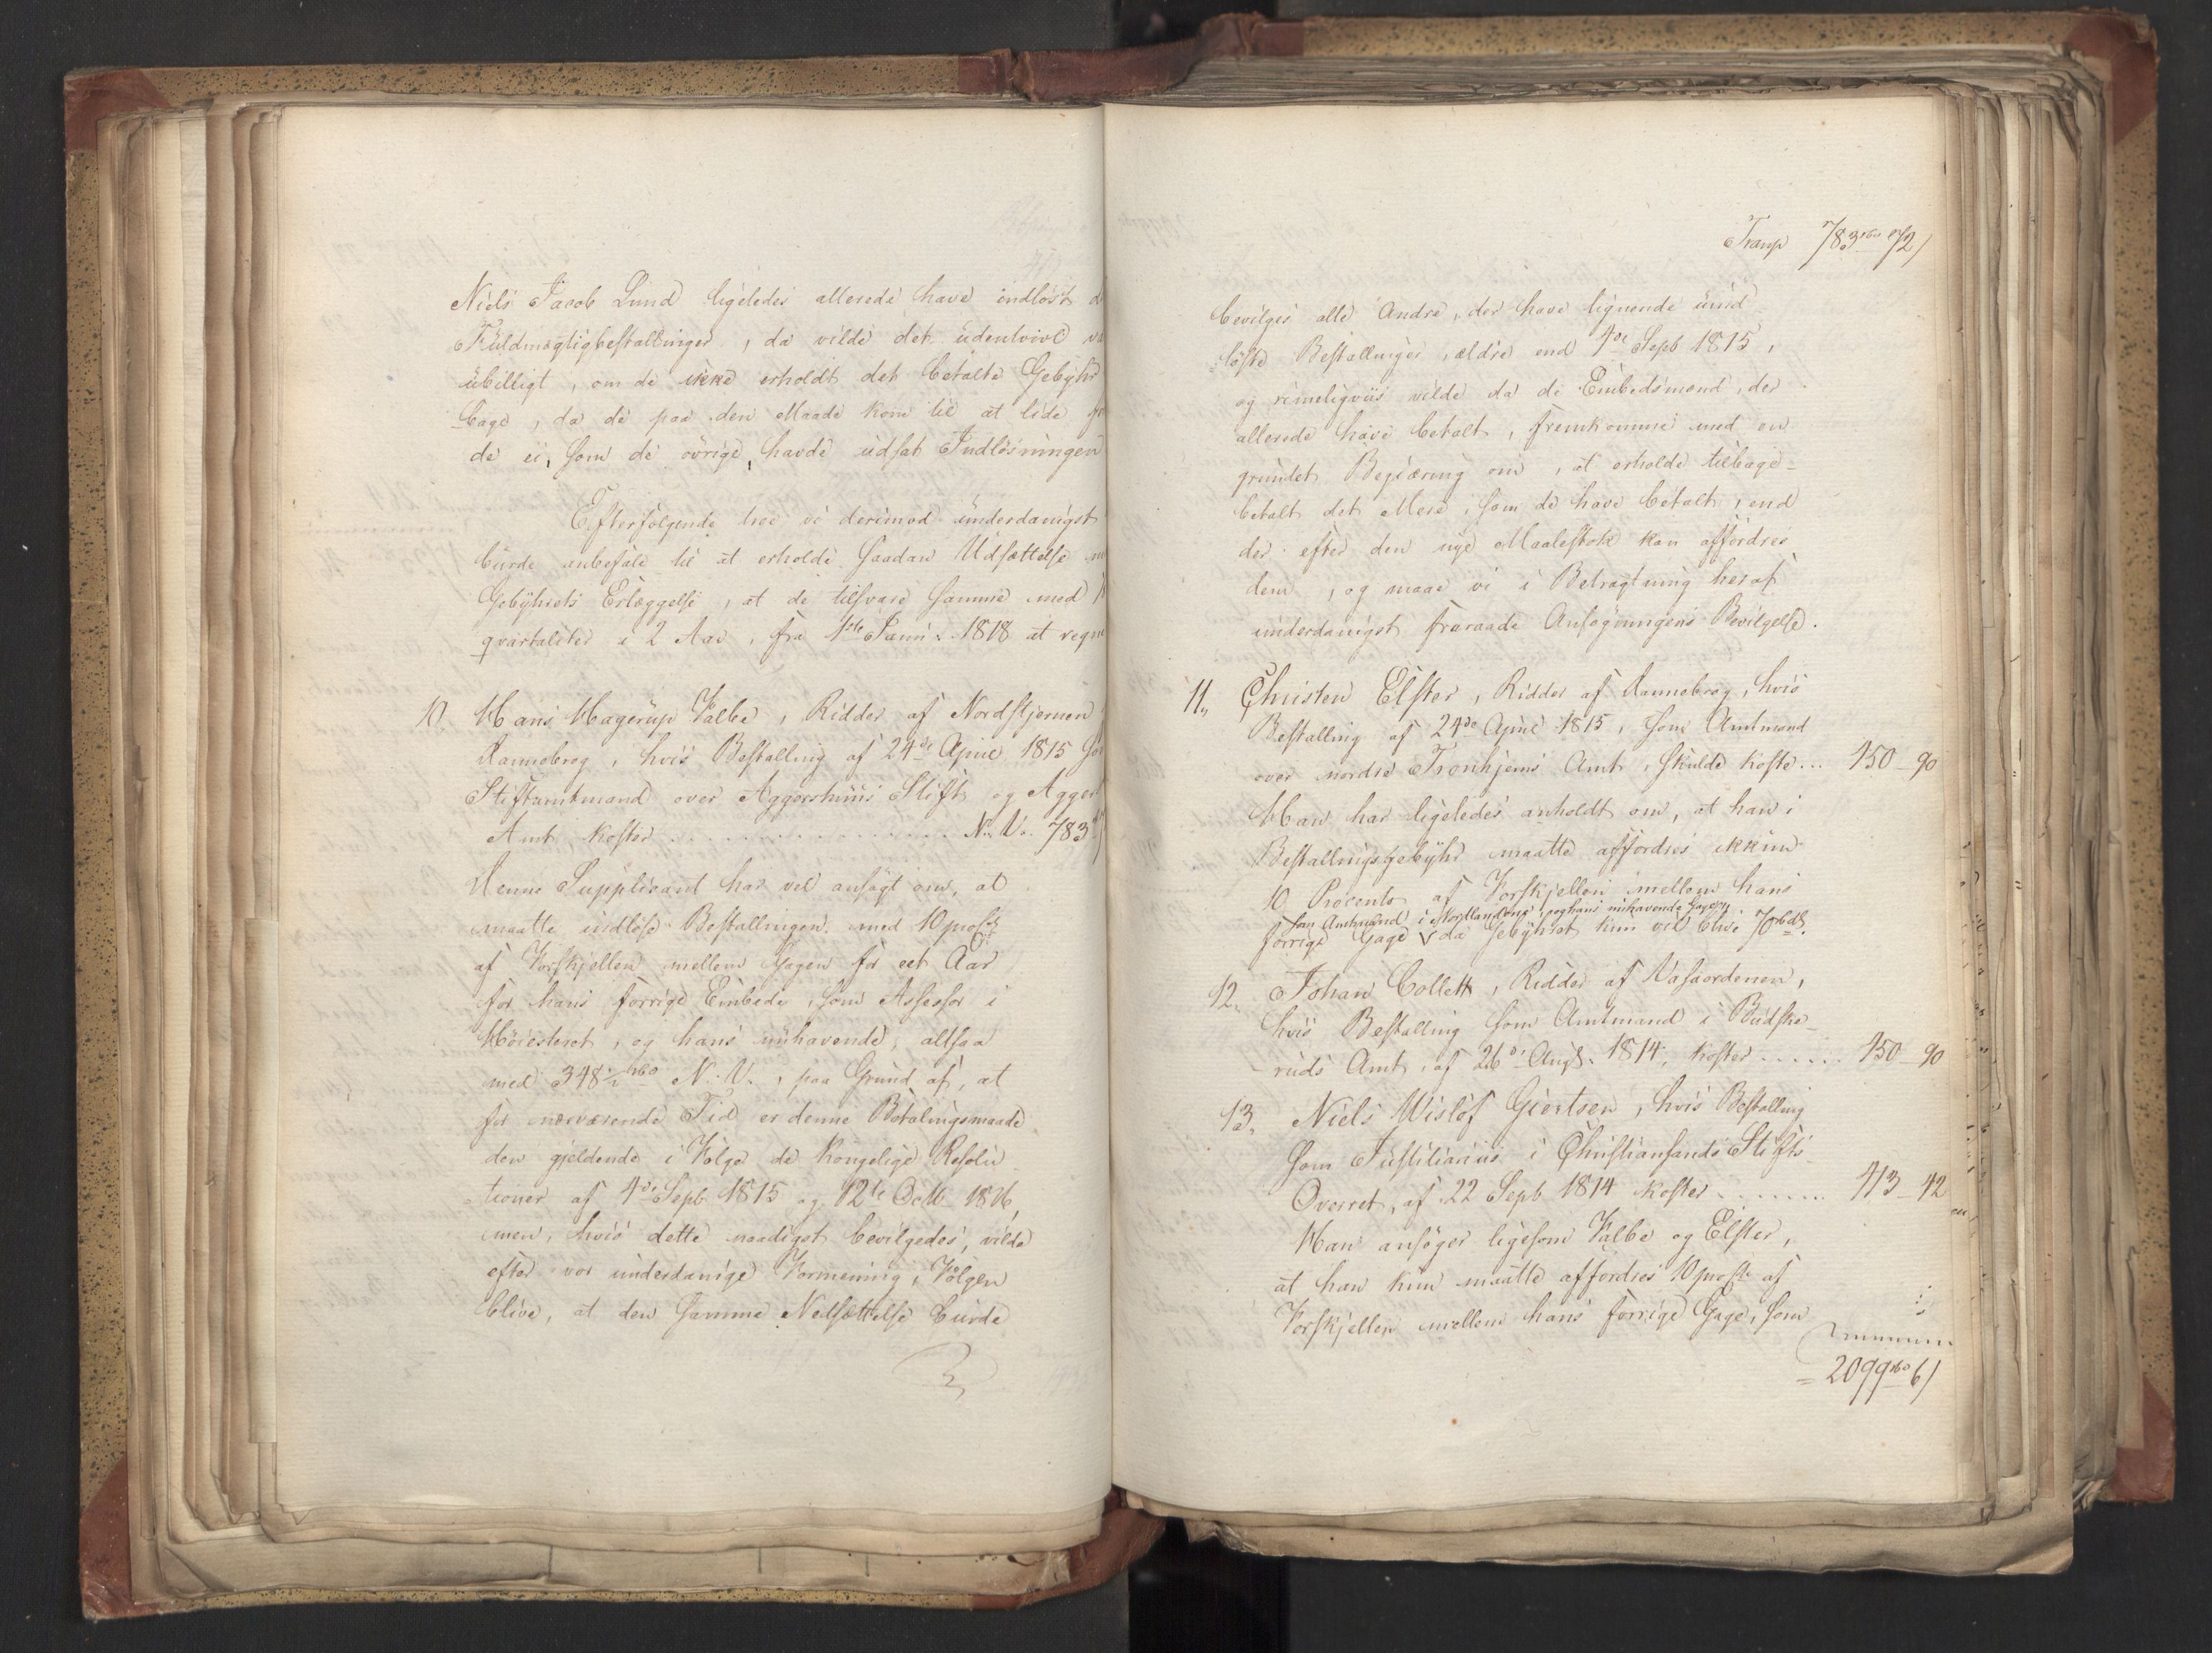 Niels Jacob Lund ligeledes allerede have indløst
Fuldmægtigbestallinger, da vilde det udentvivl
ubilligt, om de ikke erholdt det betalte Gebyhr
bage, da de paa den Maade kom til at lide
de ei, som de övrige, havde udsat Indlösningen
Efterfölgende troe vi derimod underdanigst
burde anbefale til at erholde saadan Udsættelse
Gebyhrets Erlæggelse, at de tilsvare samme med
qvartaliter i 2 Aar, fra 1ste Januar 1818 at regne
10. Hans Hagerup Falbe, Ridder af Nordstjernen
Dannebrog, hvis Bestalling af 24de April 1815
Stiftamtmand over Aggershuus Stift og Agger
Amt koster . . . . . . . . N. V. 783
Denne Supplicant har vel ansögt om, at
maatte indlöse Bestallingen med 10 proCt
af Forskjellen mellem Gagen for eet Aar
for hans forrige Embede, som Assessor i
Höiesteret, og hans nuhavende, altsaa
med 348½ N. V., paa Grund af, at
for nærværende Tid er denne Betalingsmaade
den gjeldende i Fölge de kongelige Resolu-
tioner af 1de Septb 1815 og 12te Octb 1816,
men, hvis dette naadigst bevilgedes, vilde
efter vor underdanige Formening, Fölgen
blive, at den samme Nedsættelse burde
Transp 783 72
bevilges alle Andre, der have lignende uind-
löste Bestallinger, ældre end 1de Septb 1815,
og rimeligviis vilde da de Embedsmænd, der
allerede have betalt, fremkomme med en
grundet Begjæring om, at erholde tilbage-
betalt det Mere, som de have betalt, end
der efter den nye Maalestok kan affordres
dem, og maae vi i Betragtning heraf
underdanigst fraraade Ansögningens Bevilgelse.
11. Christen Elster, Ridder af Dannebrog, hvis
Bestalling af 24de April 1815, som Amtmand
over nordre Tronhjems Amt, skulde koste... 150 - 90
Han har ligeledes anholdt om, at han i
Bestallingsgebyhr maatte affordres ikkun
10 Procento af Forskjellen imellem hans
som Amtmand i Nordlandene, og hans nuhavende Gage,
forrige Gage da Gebyhret kun vil blive 70
12. Johan Collett, Ridder af Vasaordenen,
hvis Bestalling som Amtmand i Budske-
ruds Amt, af 26de Augs. 1814, koster . . . . . . 150 - 90
13. Niels Wislöf Giertsen, hvis Bestalling
som Justitiarius i Christiansands Stifts-
Overret, af 22 Septb 1814 koster . . . . . . 413 - 42
Han ansöger ligesom Falbe og Elster,
at han kun maatte affordres 10 proCt af
Forskjellen mellem hans forrige Gage, som
= 2099 6